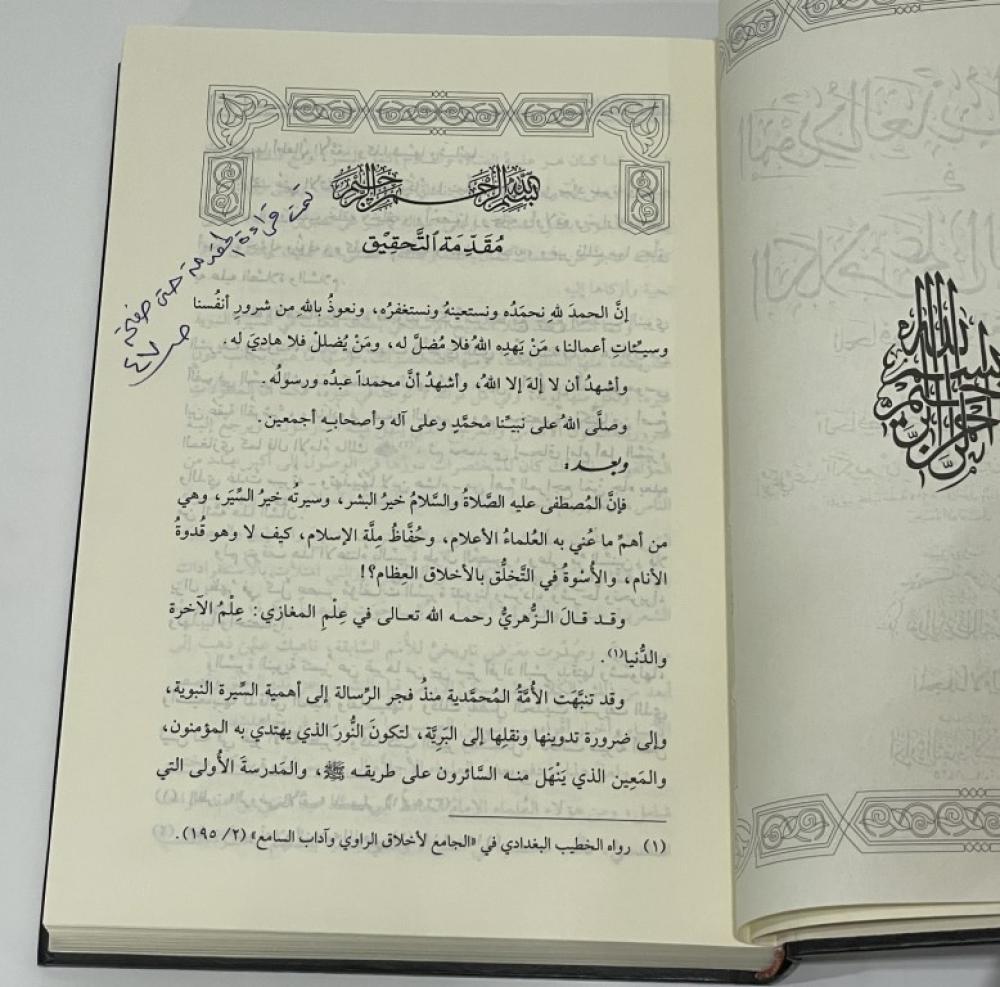 بسم الله الرحمن الرحيم
مُقَدِّمَة التَّحقِيق
تمت قراءة المقدمة حتى صفحة
ص ٤٧
إنَّ الحمدَ للهِ نحمَدُه ونستعينهُ ونستغفرُه، ونعوذُ باللهِ من شرورِ أنفُسنا
وسيـّئاتِ أعمالنا، مَنْ يَهدِه اللهُ فلا مُضلَّ له، ومَنْ يُضللْ فلا هاديَ له.
وأشهدُ أن لا إلهَ إلا اللهُ، وأشهدُ أنَّ محمداً عبدُه ورسولُه.
وصلَّى اللهُ على نبيِّـنا محمَّدٍ وعلى آله وأصحابـه أجمعين.
وبعـد:
فإنَّ المُصطفى عليه الصَّلاةُ والسَّلامُ خيرُ البشر، وسيرتُه خيرُ السِّيَر، وهي
من أهمِّ ما عُني به العُلماءُ الأعلام، وحُفَّاظُ مِلَّة الإسلام، كيف لا وهو قُدوةُ
الأنام، والأُسْوةُ في التَّخلُّق بالأخلاق العِظام؟!
وقـد قـالَ الـزُّهريُّ رحمـه الله تعـالى في عِلْمِ المغازي: عِلْمُ الآخرة
والدُّنيا(١).
وقد تنبَّهَت الأُمَّةُ المُحمَّدية منذُ فجر الرِّسالة إلى أهمية السِّيرة النبوية،
وإلى ضرورة تدوينها ونقلِها إلى البَريَّة، لتكونَ النُّورَ الذي يهتدي به المؤمنون،
والمَعين الذي يَنْهَل منـه السَّائرون على طريقـه ﷺ، والمَدرسةَ الأُولى التي
(١) رواه الخطيب البغدادي في «الجامع لأخلاق الراوي وآداب السامع» (٢/ ١٩٥).